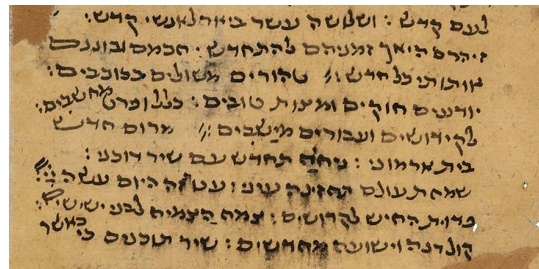 לעם קדש : ושלושה עשר ביאר לאנשי קדש :
זיהרם היאך זמניהם להתחדש · חכמם ובוננם
אותותי כל חדש : טהורים משולים בכוכבים :
יודעים חוקים ומצות טובים : כלל ופרט מחשבים :
לקידושים ועבורים מישבים : מרום חדש
בית ארמוני : ניחה תחדש עם שיר דוכני :
שמחת עולם תחזינה עיני : עטרה היום עשה
פדות החיש לקדושים : צמח הצמיח לבני ישישים :
קול רנה וישועה מחדשים : שיר תוכנים כי כאשר